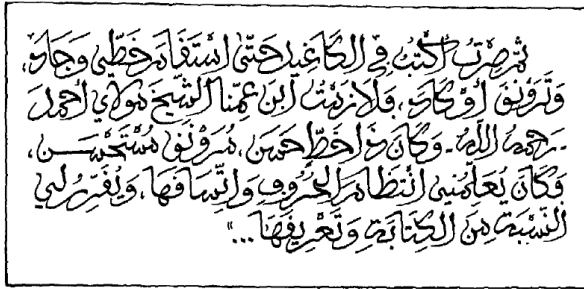 ثم صرت أكتب في الكاغيد حتى استقام خطي وجاد،
وترونق أو كاد، فلازمت ابن عمنا الشيخ مولاي أحمد
-رحمه الله- وكان ذا خط حسن، مرونق مستحسن،
فكان يعلمني انتظام الحروف واتساقها، ويقرر لي
النسبة من الكتابة وتعريفها..."